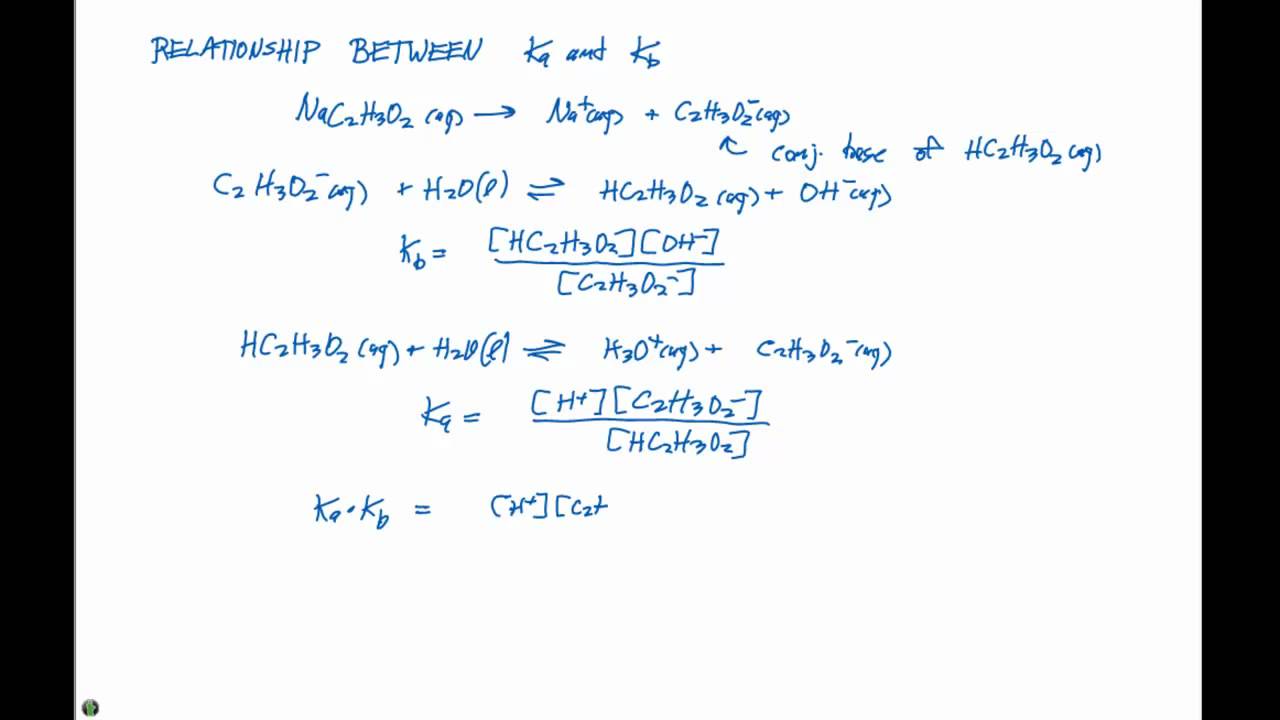 RELATIONSHIP BETWEEN Ka and Kb
NaC₂H₃O₂ (aq) ⟶ Na⁺(aq) + C₂H₃O₂⁻(aq)
↖ conj. base of HC₂H₃O₂ (aq)
C₂H₃O₂⁻(aq) + H₂O(l) ⇌ HC₂H₃O₂ (aq) + OH⁻(aq)
Kb = [HC₂H₃O₂][OH⁻]
[C₂H₃O₂⁻]
HC₂H₃O₂ (aq) + H₂O(l) ⇌ H₃O⁺(aq) + C₂H₃O₂⁻(aq)
Ka = [H⁺][C₂H₃O₂⁻]
[HC₂H₃O₂]
Ka·Kb = [H⁺][C₂H